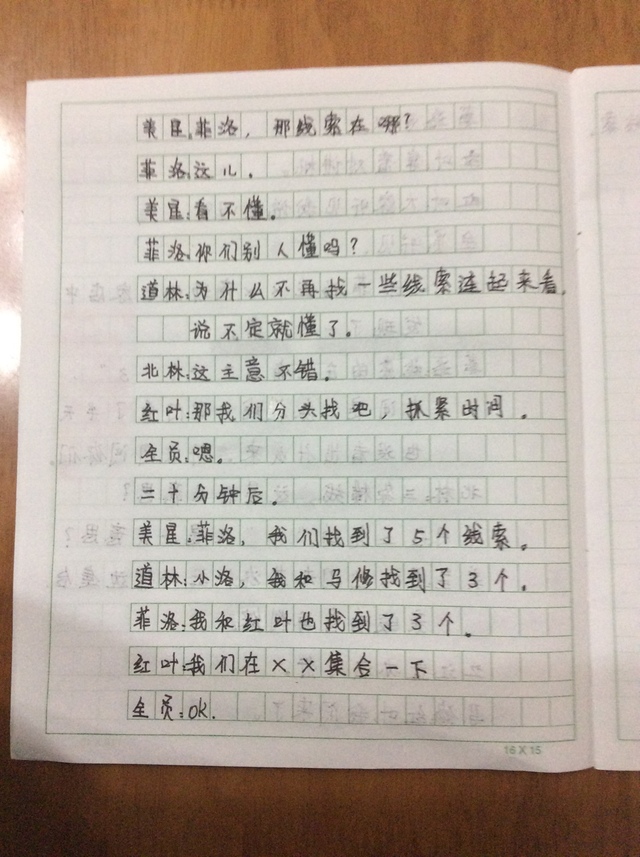 美星:菲洛，那线索在哪？
菲洛:这儿.
美星:看不懂。
菲洛:你们别人懂吗？
道林:为什么不再找一些线索连起来看，
说不定就懂了。
北林:这主意不错。
红叶:那我们分头找吧，抓紧时间。
全员:嗯。
二十分钟后。
美星:菲洛，我们找到了5个线索。
道林:小洛，我和马修找到了3个。
菲洛:我和红叶也找到了3个。
红叶:我们在××集合一下
全员:ok.
16×15